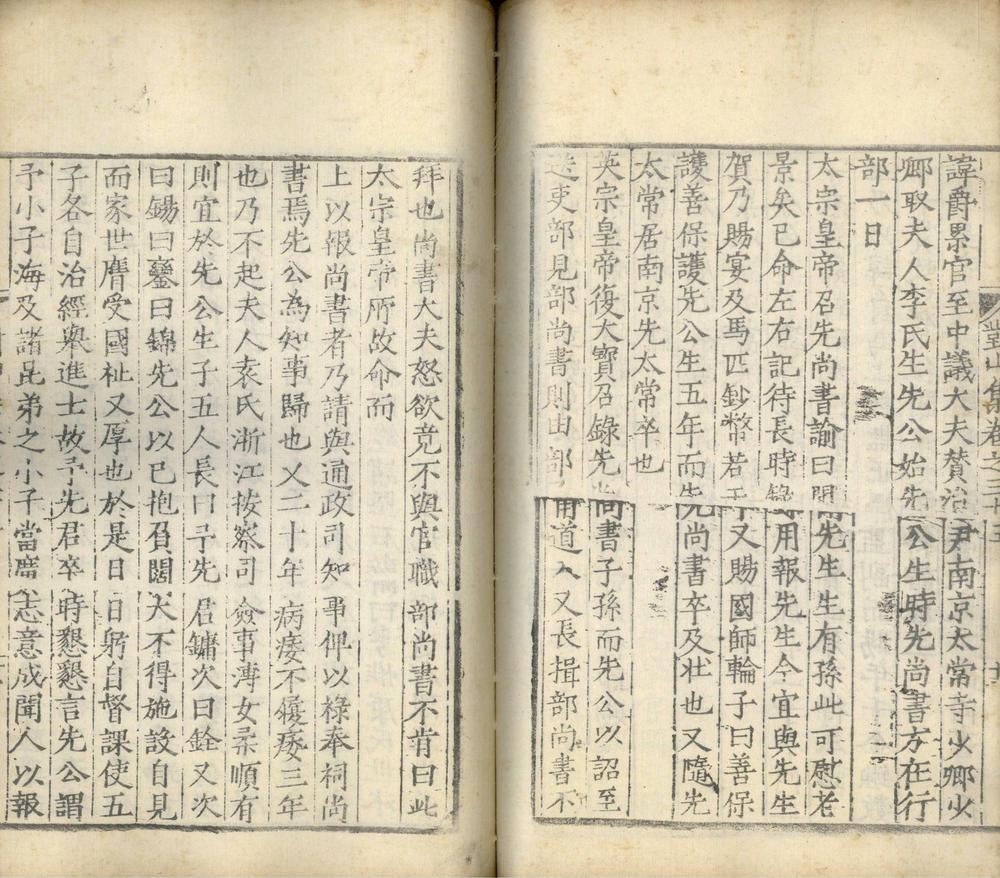 對山集卷之三十五
諱爵累官至中議大夫贊治尹南京太常寺少卿少
卿取夫人李氏生先公始先公生時先尚書方在行
部一日
太宗皇帝召先尚書諭曰聞先生生有孫此可慰老
景矣已命左右記待長時錄用報先生今宜與先生
賀乃賜宴及馬匹鈔幣若干又賜國師輪子曰善保
護善保護先公生五年而先尚書卒及壯也又隨先
太常居南京先太常卒也
英宗皇帝復大寶召錄先尚書子孫而先公以詔至
送吏部見部尚書則由部甬道入又長揖部尚書不
拜也尚書大夫怒欲竟不與官職部尚書不肯曰此
太宗皇帝所故命而
上以報尚書者乃請與通政司知事俾以祿奉祠尚
書焉先公為知事歸也又二十年病痿不履痿三年
也乃不起夫人袁氏浙江按察司僉事溥女柔順有
則宜於先公生子五人長曰予先君鏞次曰銓又次
曰錫曰鑾曰錦先公以已抱負闊大不得施設自見
而家世膺受國祉又厚也於是日日躬自督課使五
子各自治經舉進士故予先君卒時懇懇言先公謂
予小子海及諸昆弟之小子當席志意成聞人以報